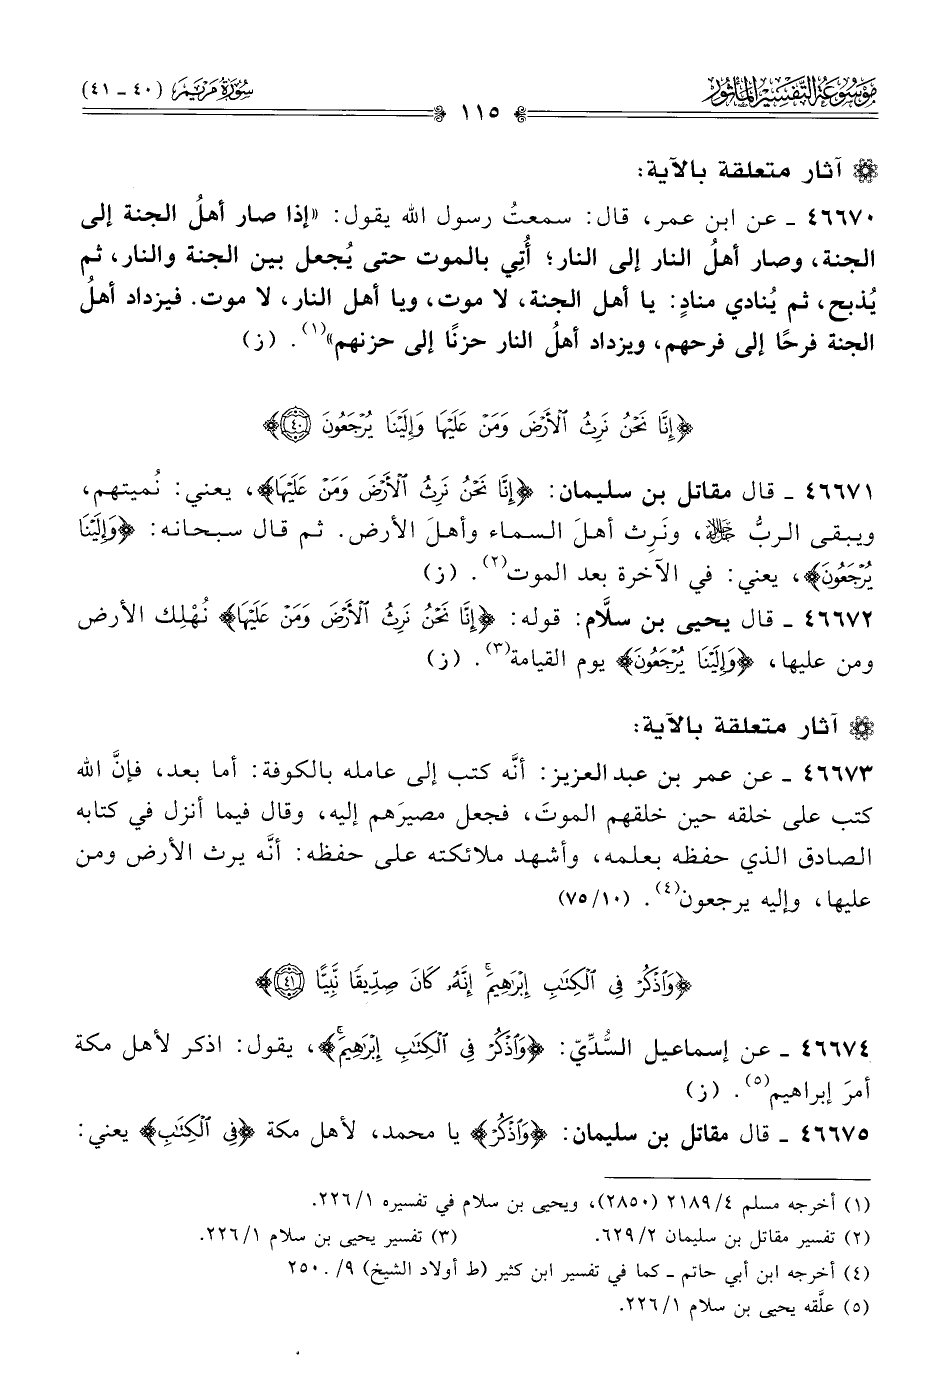 موسوعة التفسير المأثور
سورة مريم (٤٠ - ٤١)
١١٥
آثار متعلقة بالآية:
٤٦٦٧٠ ـ عن ابن عمر، قال: سمعتُ رسول الله يقول: «إذا صار أهلُ الجنة إلى
الجنة، وصار أهلُ النار إلى النار؛ أُتِي بالموت حتى يُجعل بين الجنة والنار، ثم
يُذبح، ثم يُنادي منادٍ: يا أهل الجنة، لا موت، ويا أهل النار، لا موت. فيزداد أهلُ
الجنة فرحًا إلى فرحهم، ويزداد أهلُ النار حزنًا إلى حزنهم»(١). (ز)
﴿إِنَّا نَحْنُ نَرِثُ ٱلْأَرْضَ وَمَنْ عَلَيْهَا وَإِلَيْنَا يُرْجَعُونَ ٤٠﴾
٤٦٦٧١ ـ قال مقاتل بن سليمان: ﴿إِنَّا نَحْنُ نَرِثُ ٱلْأَرْضَ وَمَنْ عَلَيْهَا﴾، يعني: نُميتهم،
ويبقى الربُّ ﷻ، ونَرِث أهلَ السماء وأهلَ الأرض. ثم قال سبحانه: ﴿وَإِلَيْنَا
يُرْجَعُونَ﴾، يعني: في الآخرة بعد الموت(٢). (ز)
٤٦٦٧٢ ـ قال يحيى بن سلَّام: قوله: ﴿إِنَّا نَحْنُ نَرِثُ ٱلْأَرْضَ وَمَنْ عَلَيْهَا﴾ نُهْلِك الأرض
ومن عليها، ﴿وَإِلَيْنَا يُرْجَعُونَ﴾ يوم القيامة(٣). (ز)
آثار متعلقة بالآية:
٤٦٦٧٣ ـ عن عمر بن عبد العزيز: أنَّه كتب إلى عامله بالكوفة: أما بعد، فإنَّ الله
كتب على خلقه حين خلقهم الموتَ، فجعل مصيرَهم إليه، وقال فيما أنزل في كتابه
الصادق الذي حفظه بعلمه، وأشهد ملائكته على حفظه: أنَّه يرث الأرض ومن
عليها، وإليه يرجعون(٤). (١٠/٧٥)
﴿وَٱذْكُرْ فِى ٱلْكِتَٰبِ إِبْرَٰهِيمَ ۚ إِنَّهُۥ كَانَ صِدِّيقًا نَّبِيًّا ٤١﴾
٤٦٦٧٤ ـ عن إسماعيل السُّدِّيّ: ﴿وَٱذْكُرْ فِى ٱلْكِتَٰبِ إِبْرَٰهِيمَ ۚ﴾، يقول: اذكر لأهل مكة
أمرَ إبراهيم(٥). (ز)
٤٦٦٧٥ ـ قال مقاتل بن سليمان: ﴿وَٱذْكُرْ﴾ يا محمد، لأهل مكة ﴿فِى ٱلْكِتَٰبِ﴾ يعني:
(١) أخرجه مسلم ٤/٢١٨٩ (٢٨٥٠)، ويحيى بن سلام في تفسيره ١/٢٢٦.
(٢) تفسير مقاتل بن سليمان ٢/٦٢٩. (٣) تفسير يحيى بن سلام ١/٢٢٦.
(٤) أخرجه ابن أبي حاتم ـ كما في تفسير ابن كثير (ط أولاد الشيخ) ٩/٢٥٠.
(٥) علَّقه يحيى بن سلام ١/٢٢٦.